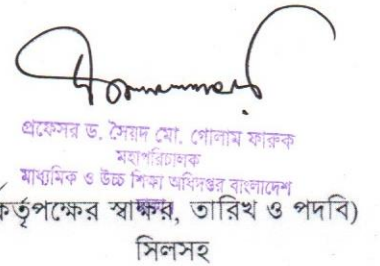 প্রফেসর ড. সৈয়দ মো. গোলাম ফারুক
মহাপরিচালক
মাধ্যমিক ও উচ্চ শিক্ষা অধিদপ্তর বাংলাদেশ
কর্তৃপক্ষের স্বাক্ষর, তারিখ ও পদবি)
সিলসহ